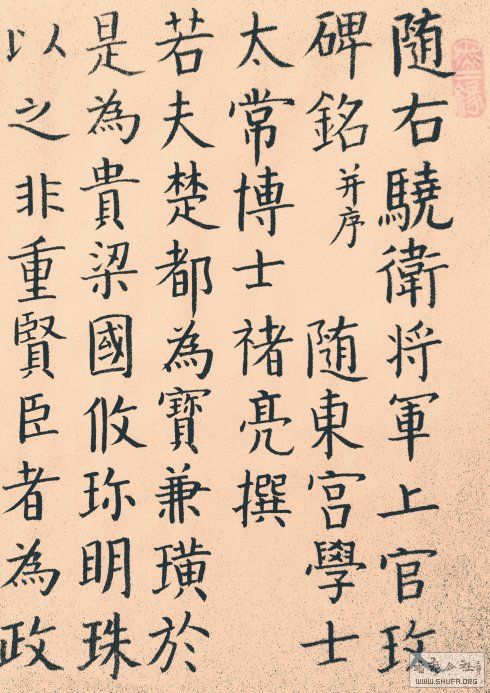 随右驍衛将軍上官玫
碑銘并序　随東宫學士
太常博士褚亮撰
若夫楚都為寶兼璜於
是為貴梁國攸珎明珠
以之非重賢臣者為政
WWW.SHUFA.ORG